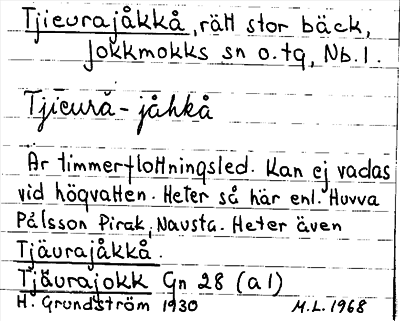 Tjieurajåkkå, rätt stor bäck,
Jokkmokks sn o. tg, Nb. l.
Tjīeurā-jåhkå
Är timmerflottningsled. Kan ej vadas
vid högvatten. Heter så här enl. Huvva
Pålsson Pirak, Navsta. Heter även
Tjäurajåkkå.
Tjäurajokk Gn 28 (a1)
H. Grundström 1930 M.L. 1968